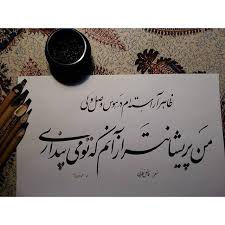 ظاهر آراسته‌ام در هوس وصل ولی
من پریشان‌تر از آنم که تو می‌پنداری